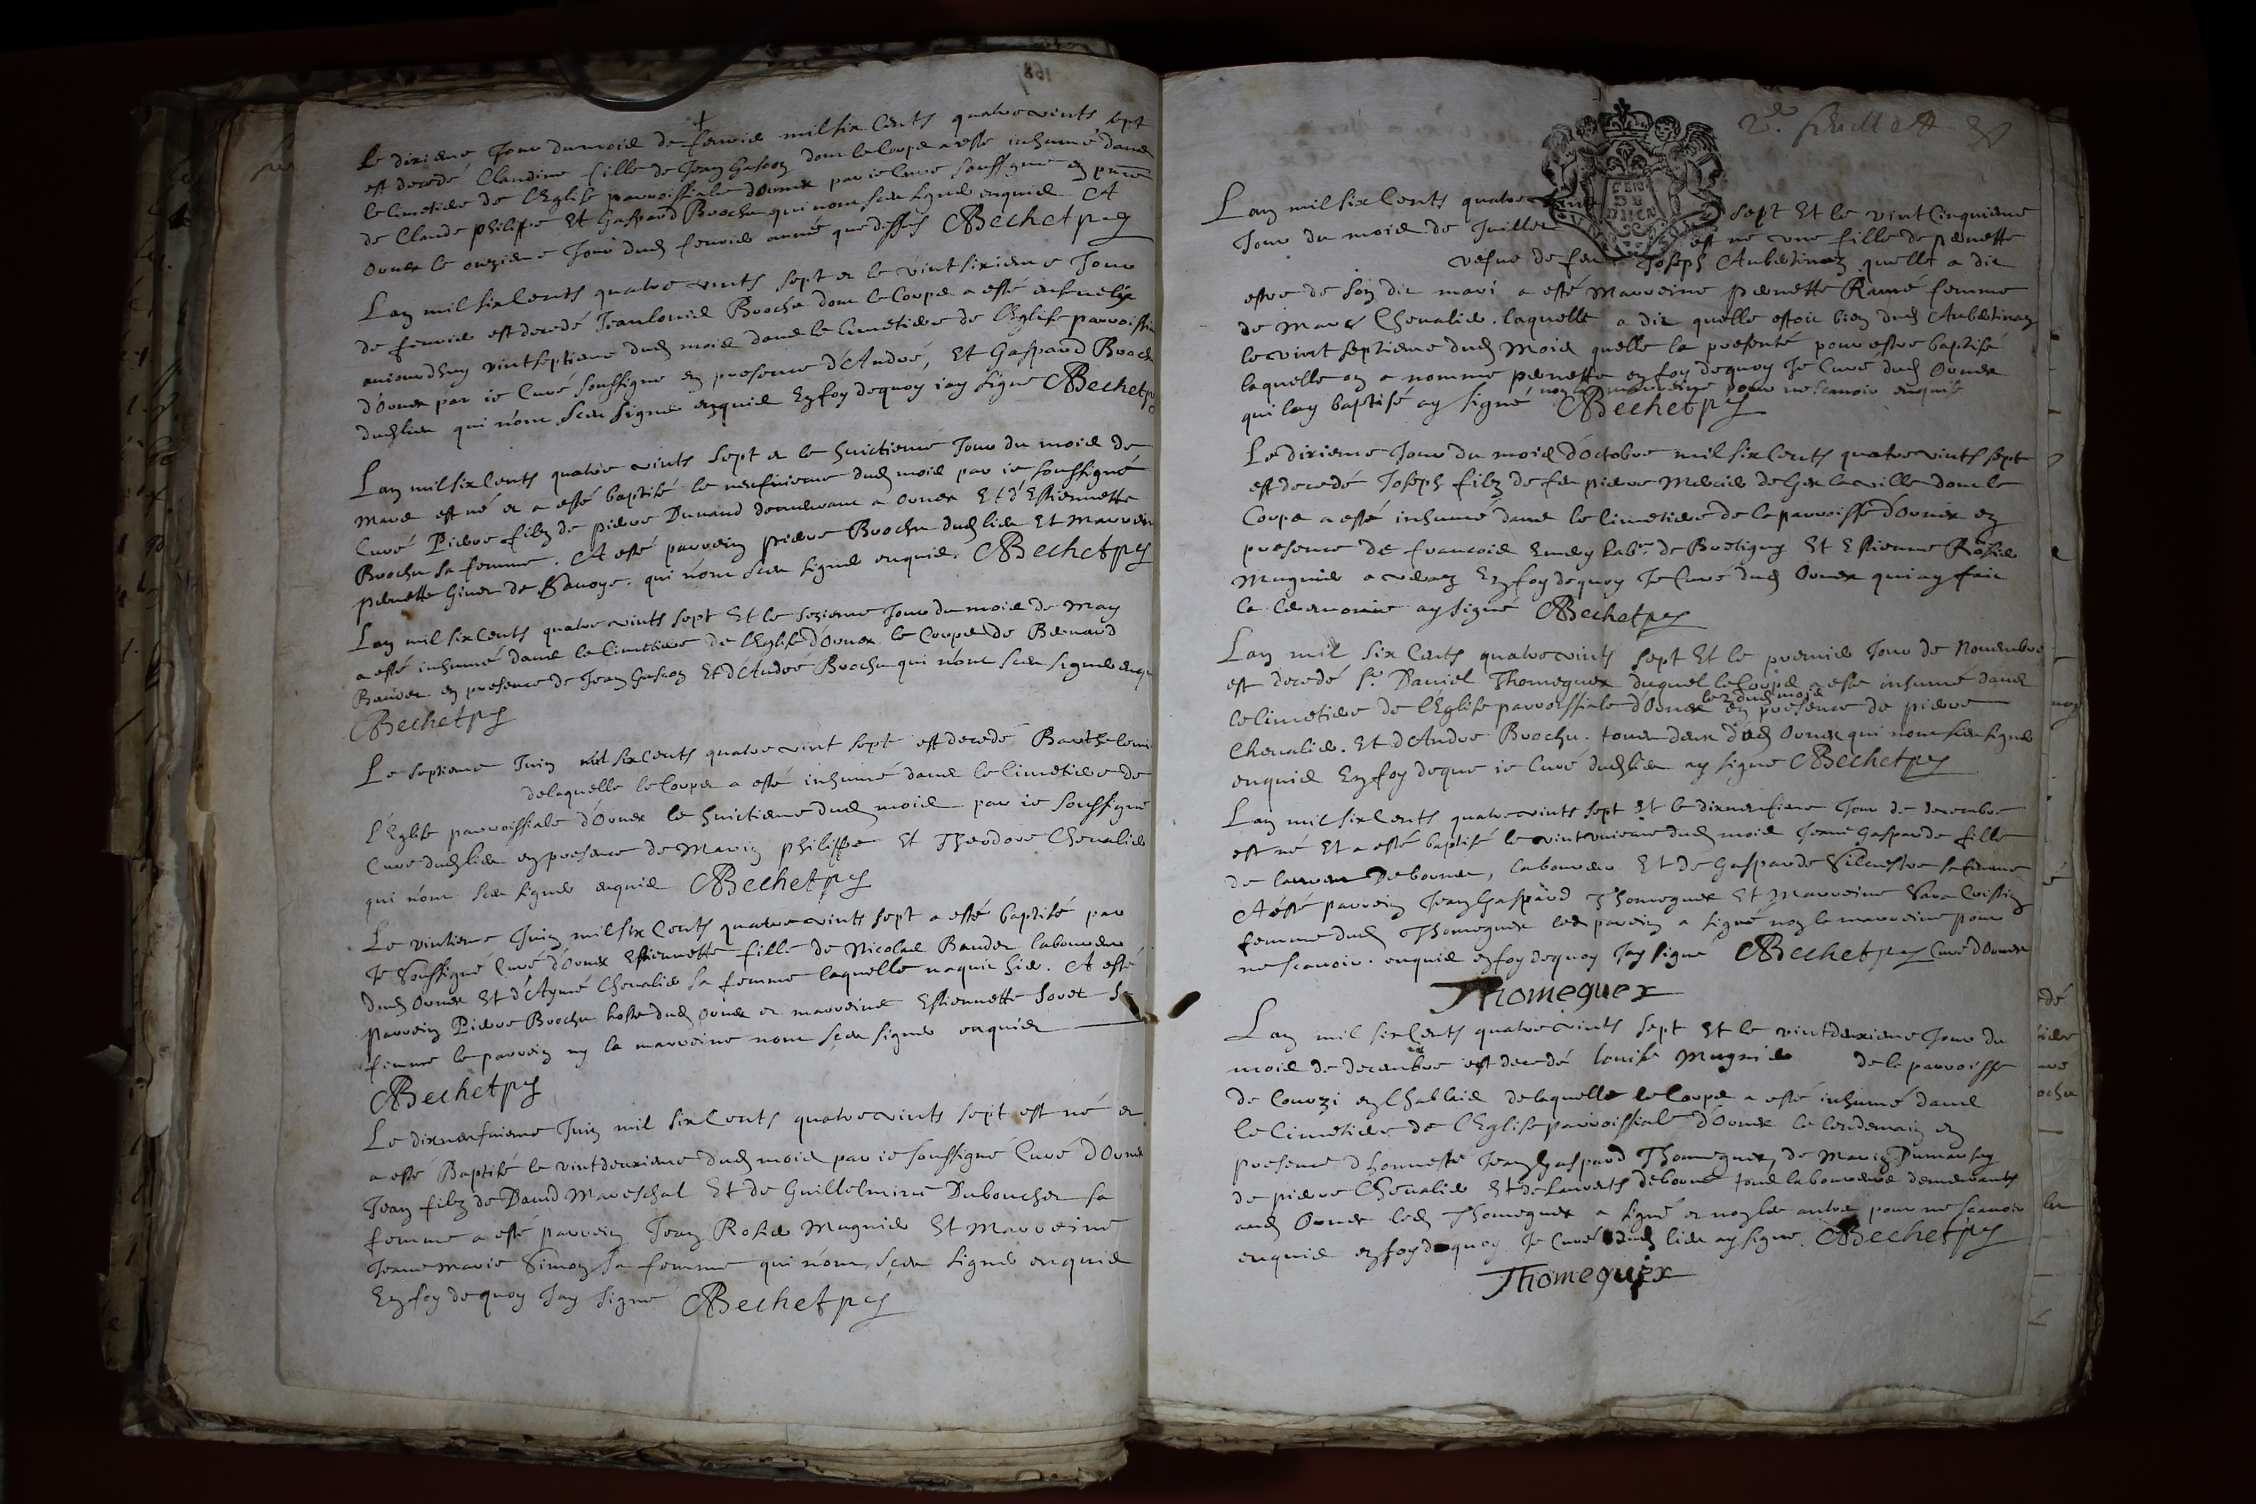 Le dixieme Jour du mois de fevrier mil six Cents quatre vints sept
est decedé Claudine fille de Jean Gascon dont le Corps a esté inhumé dans
le Cimetiere de l'Eglise parroissiale d'Ornex par ie Curé soussigné en pnce
de Claude philippe Et Gaspard Brochu qui n'ont sceu signer enquis A
Ornex le onzieme Jour dud fevrier année que dessus Bechet
Lan mil six Cents quatre vints sept et le vint sixieme Jour
de fevrier est decedé Jean louis Brochu dont le Corps a esté ensevelis
auiourdhuy vint septieme dud mois dans le Cimetiere de l'Eglise parroissiale
d'Ornex par ie Curé soussigné en presence d'André, Et Gaspard Brochu
dud lieu qui n'ont sceu signer enquis En foy dequoy iay signé Bechet
Lan mil six Cents quatre vints sept et le huictieme Jour du mois de
mars est né et a esté baptisé le neufvieme dud mois par ie soussigné
Curé Pierre filz de pierre Dunand demeurant a Ornex Et d'Estiennette
Brochu sa femme. A esté parrein pierre Brochu dud lieu Et Marreine
pernette de Savoye. qui n'ont sceu signer enquis. Bechet
Lan mil six Cents quatre vints sept Et le sezieme Jour du mois de May
a esté inhumé dans le Cimetiere de l'Eglise d'Ornex le Corps de Bernard
en presence de Jean Gascon Et d'André Brochu qui n'ont sceu signer enquis
Bechet
Le septieme Juin mil six Cents quatre vint sept est decedé
delaquelle le Corps a esté inhumé dans le Cimetiere de
l'Eglise parroissiale d'Ornex le huictieme dud mois par ie soussigné
Curé dud lieu en presence de Marin philippe Et Theodore Chevalier
qui n'ont sceu signer enquis Bechet
Le vintieme Juin mil six Cents quatre vints sept a esté baptisé par
Je Soussigné Curé d'Ornex Estiennette fille de Nicolas Baudet laboureur
dud Ornex Et d'Aymé Chevalier sa femme laquelle naquit hier. A esté
parrein Pierre Brochu hoste dud Ornex et marreine Estiennette Sovet sa
femme le parrein ny la marreine n'ont sceu signer enquis
Bechet
Le dixneufvieme Juin mil six Cents quatre vints sept est né et
a esté Baptisé le vintdeuxieme dud mois par ie soussigné Curé d'Ornex
Jean filz de David Mareschal Et de Guillelmine Duboucher sa
femme a esté parrein Jean Rosier Mugnier Et Marreine
Jeanne Marie Simon sa femme qui n'ont sceu signer enquis
En foy de quoy Jay signé Bechet
Lan mil six Cents quatre vint sept Et le vint Cinquieme
Jour du mois de Juillet est né une fille de pernette
vefve de feu Joseph Aubertinaz quelle a dit
estre de son dit mari a esté Marreine pernette Ramé femme
de Marc Chevalier. laquelle a dit quelle estoit bien dud Aubertinaz
le vint septieme dud Mois quelle la presenté pour estre baptisé
laquelle on a nommé pernette en foy dequoy Je Curé dud Ornex
qui lay baptisé ay signé non la marreine pour ne scavoir enquise
Bechet
Le dixieme Jour du mois d'Octobre mil six Cents quatre vints sept
est decedé Joseph filz de feu pierre Mercier de Gex la ville dont le
Corps a esté inhumé dans le Cimetiere de la parroisse d'Ornex en
presence de francois Emery labr. de Bretigny Et Estienne Rosier
Mugnier a veraz En foy dequoy Je Curé dud Ornex qui ay fait
la Ceremonie ay signé Bechet
Lan mil six Cents quatre vints sept Et le premier Jour de Novembre
est decedé Sr. Daniel Thomeguex duquel le Corps a esté inhumé dans
le Cimetiere de l'Eglise parroissiale d'Ornex le 2 dud mois en presence de pierre
Chevalier. Et d'André Brochu. tous deux dud Ornex qui n'ont sceu signer
enquis En foy deque ie Curé dud lieu ay signé Bechet
Lan mil six Cents quatre vints sept Et le dixneufieme Jour de decembre
est né Et a esté baptisé le vintunieme dud mois Jeanne Gasparde fille
de Laurent Deborner, laboureur Et de Gasparde Silvestre sa femme
A esté parrein Jean Gaspard Thomeguex Et Marreine Sara
femme dud Thomeguex led parein a signé non la marreine pour
ne scavoir. enquis en foy dequoy Jay signé Bechet Curé d'Ornex
Thomeguex
Lan mil six Cents quatre vints sept Et le vintdeuxieme Jour du
mois de decembre est decedé louise Mugnier de la parroisse
de en Chablais delaquelle le Corps a esté inhumé dans
le Cimetiere de l'Eglise parroissiale d'Ornex le lendemain en
presence d'honneste Jean Gaspard Thomeguex, de Marin Dumarsey
de pierre Chevalier Et de Laurens deborné tous laboureurs demeurants
aud Ornex led Thomeguex a signé et non les autres pour ne scavoir
enquis en foy dequoy Je Curé dud lieu ay signé. Bechet
Thomeguex